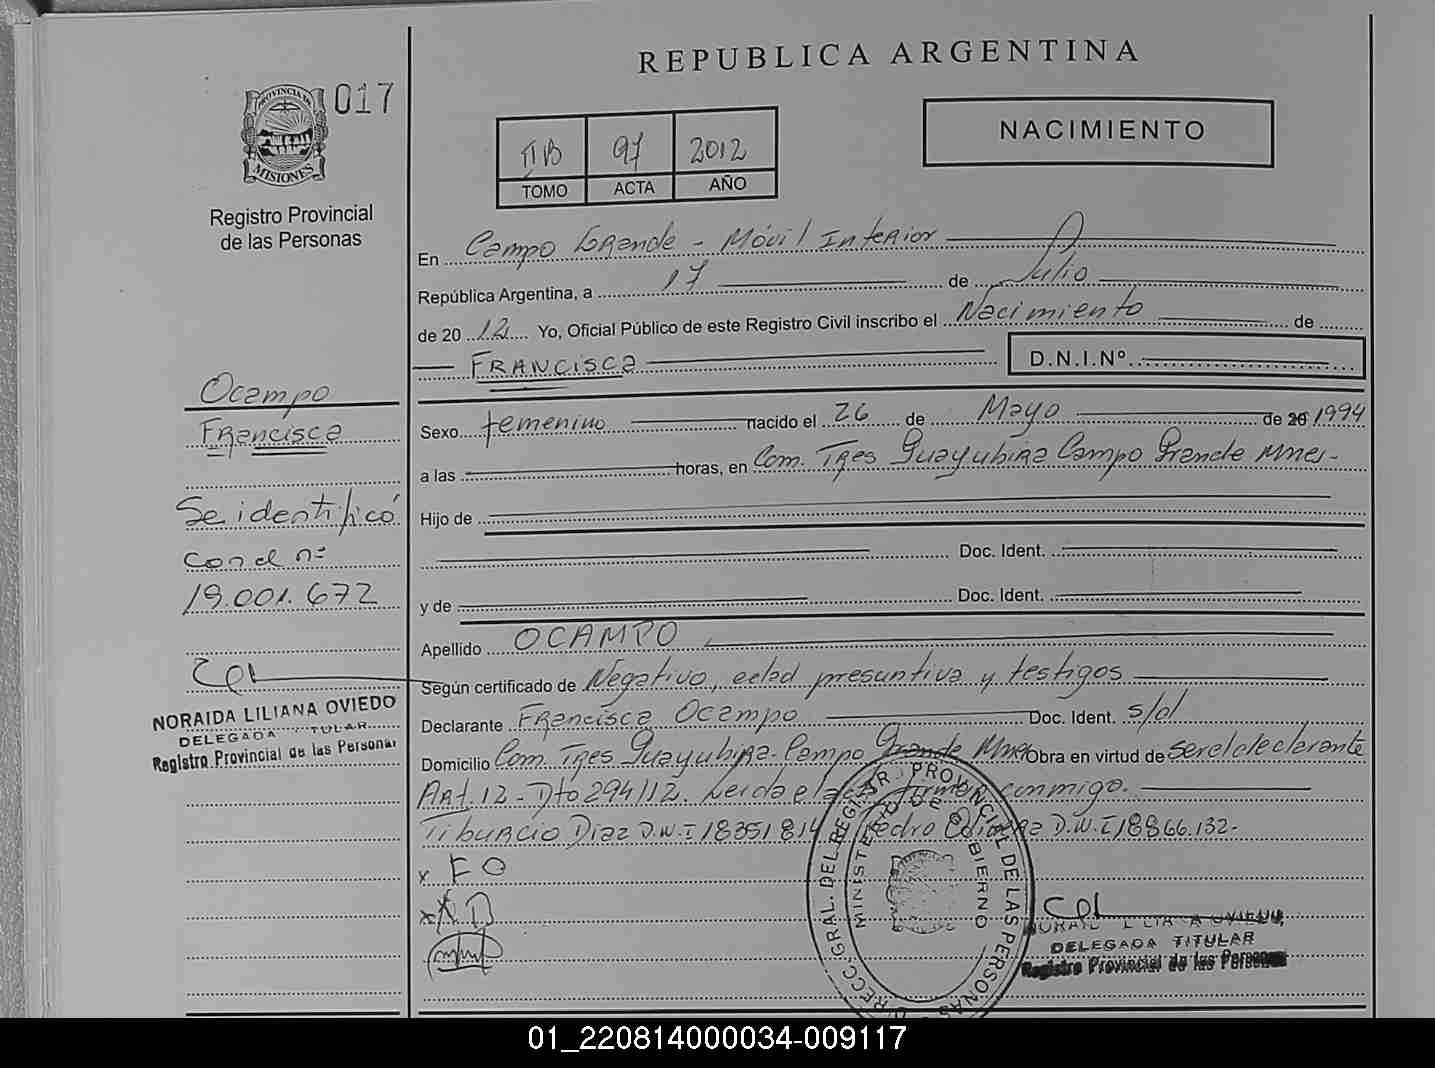 REPUBLICA ARGENTINA
017
PROVINCIA DE
MISIONES
Registro Provincial
de las Personas
TOMO ACTA AÑO
97 2012
NACIMIENTO
En Campo Grande - Móvil Interior
República Argentina, a 17 de Julio
de 20 12 Yo, Oficial Público de este Registro Civil inscribo el Nacimiento de
Francisca D.N.I.Nº.
Ocampo
Francisca
Se identificó
con d nº
19.001.672
NORAIDA LILIANA OVIEDO
DELEGADA TITULAR
Registro Provincial de las Personas
Sexo femenino nacido el 26 de Mayo de 20 1994
a las horas, en Com. Tres Guayubira Campo Grande Mnes-
Hijo de
Doc. Ident.
y de Doc. Ident.
Apellido OCAMPO
Según certificado de Negativo, edad presuntiva y testigos
Declarante Francisca Ocampo Doc. Ident. s/d
Domicilio Com. Tres Guayubira - Campo Grande Mnes Obra en virtud de ser el declarante
Art. 12 - Dto 294/12. Leida el acta firman conmigo.
Tiburcio Diaz D.N.I 18351814 Pedro D.N.I 18866.132-
x F O
DIRECC. GRAL. DEL REGISTR. PROVINCIAL DE LAS PERSONAS
MINISTERIO DE GOBIERNO
DELEGADA TITULAR
Registro Provincial de las Personas
01_220814000034-009117